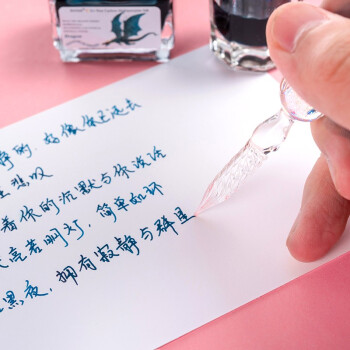 静的，好像你还远去
悲叹
着你的沉默与你说话
亮若明灯，简单如环
黑夜，拥有寂静与群星